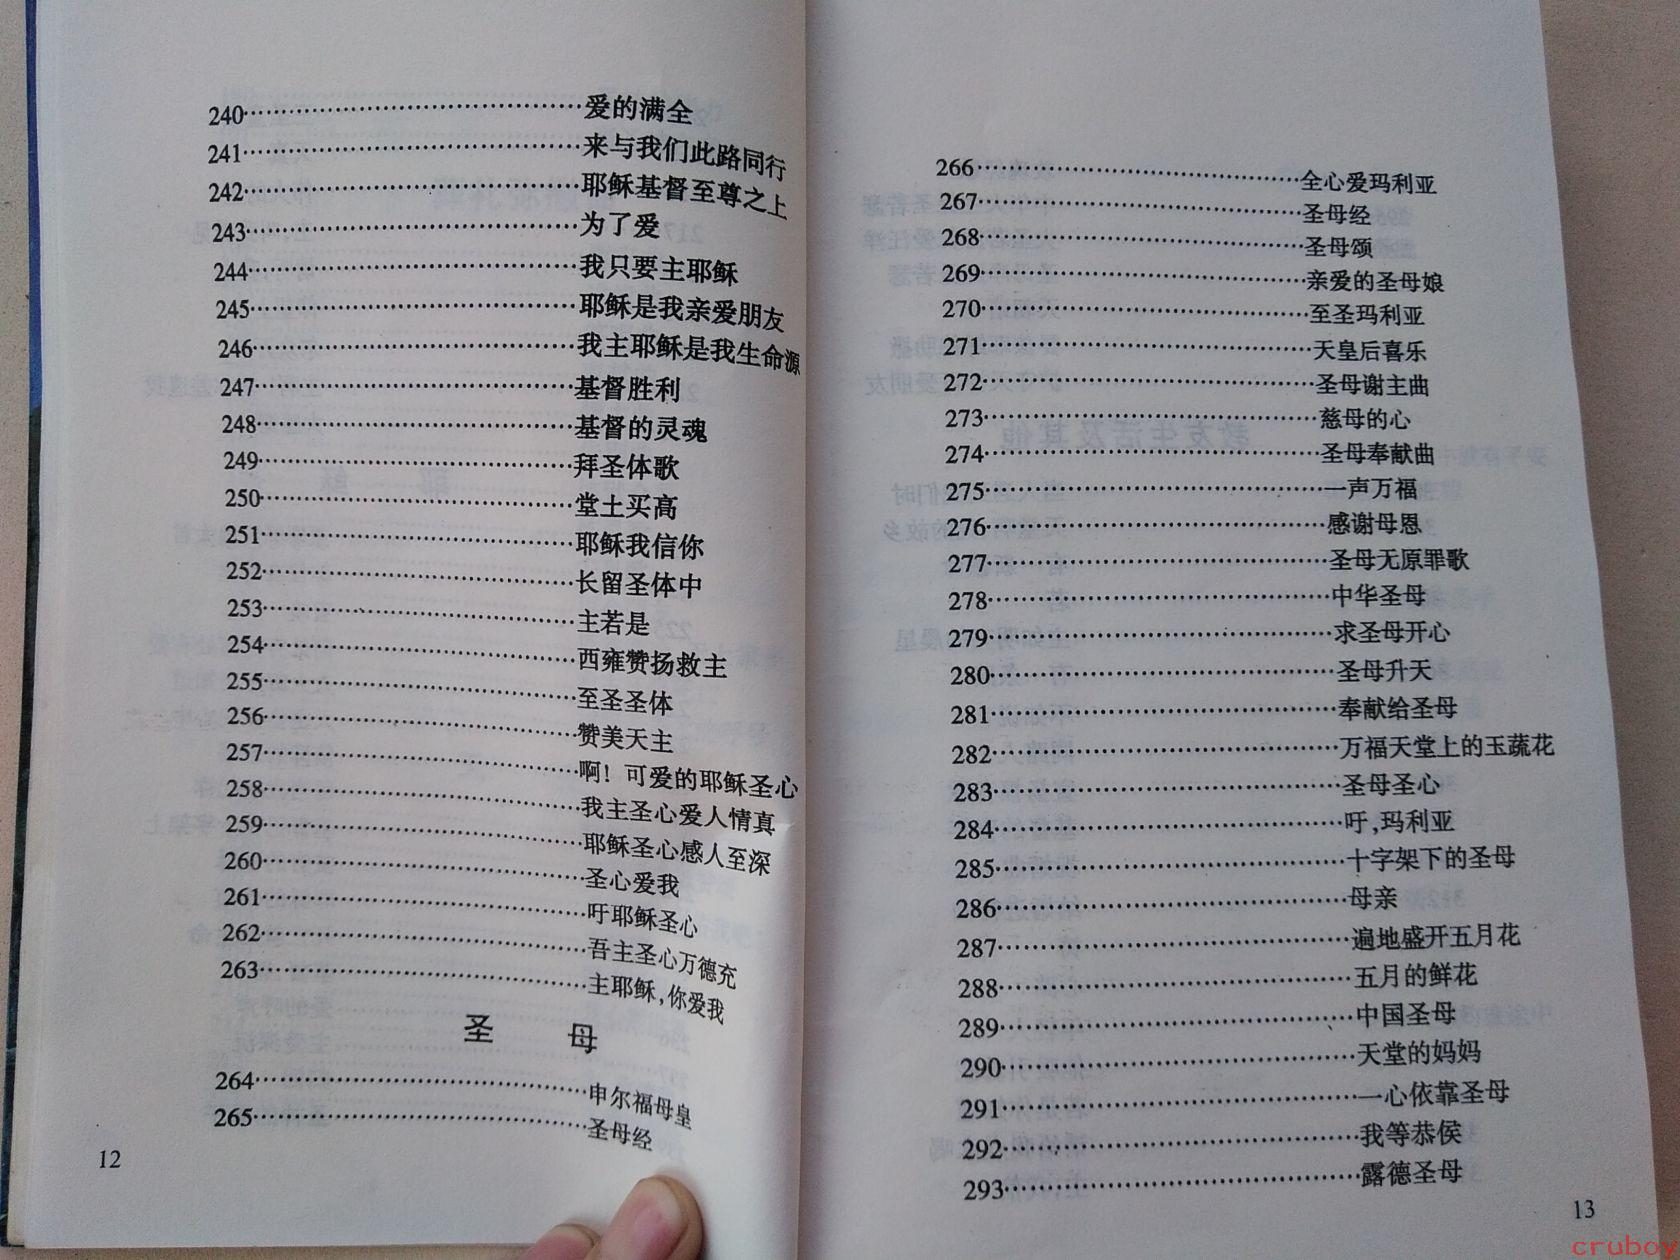 240……爱的满全
241……来与我们此路同行
242……耶稣基督至尊之上
243……为了爱
244……我只要主耶稣
245……耶稣是我亲爱朋友
246……我主耶稣是我生命源
247……基督胜利
248……基督的灵魂
249……拜圣体歌
250……堂土买高
251……耶稣我信你
252……长留圣体中
253……主若是
254……西雍赞扬救主
255……至圣圣体
256……赞美天主
257……啊！可爱的耶稣圣心
258……我主圣心爱人情真
259……耶稣圣心感人至深
260……圣心爱我
261……吁耶稣圣心
262……吾主圣心万德充
263……主耶稣,你爱我
圣 母
264……申尔福母皇
265……圣母经
12
266……全心爱玛利亚
267……圣母经
268……圣母颂
269……亲爱的圣母娘
270……至圣玛利亚
271……天皇后喜乐
272……圣母谢主曲
273……慈母的心
274……圣母奉献曲
275……一声万福
276……感谢母恩
277……圣母无原罪歌
278……中华圣母
279……求圣母开心
280……圣母升天
281……奉献给圣母
282……万福天堂上的玉蔬花
283……圣母圣心
284……吁,玛利亚
285……十字架下的圣母
286……母亲
287……遍地盛开五月花
288……五月的鲜花
289……中国圣母
290……天堂的妈妈
291……一心依靠圣母
292……我等恭侯
293……露德圣母
13
cruboy